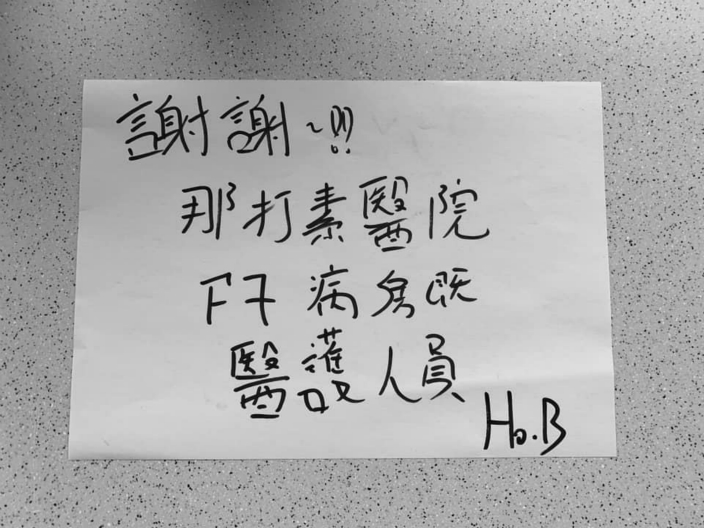 謝謝~!!
那打素醫院
F7 病房既
醫護人員
Ho.B